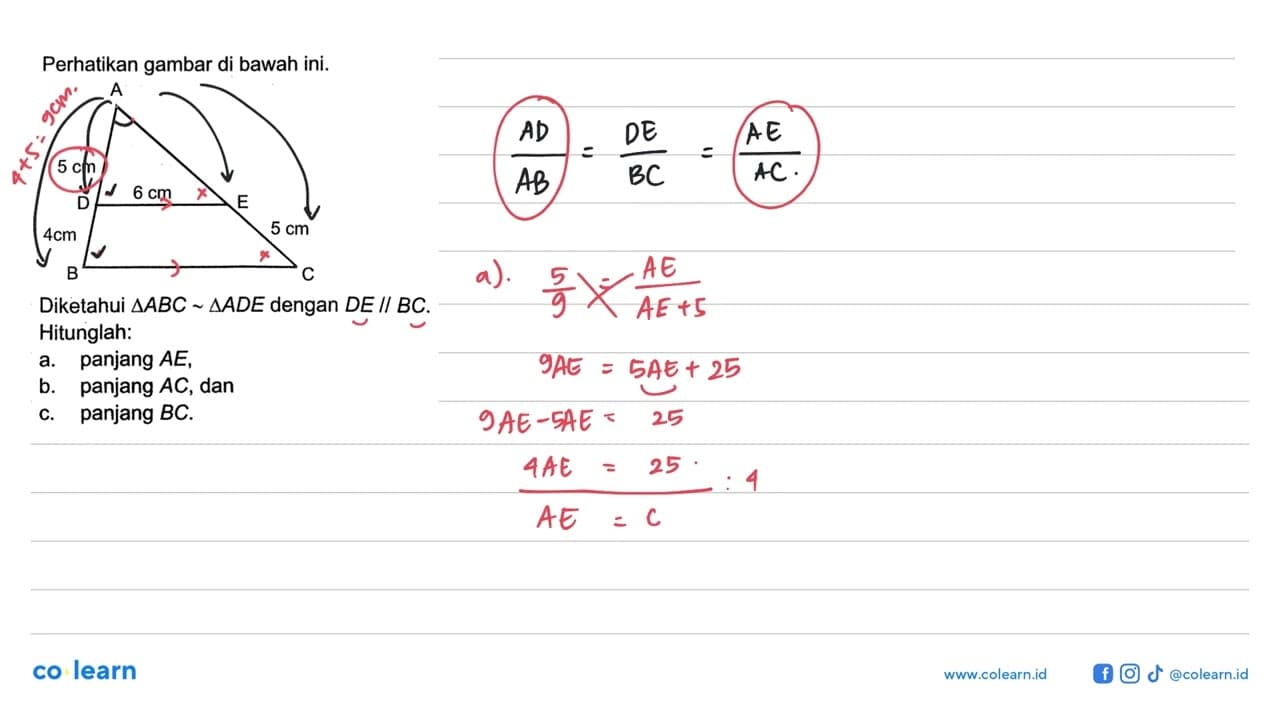 Perhatikan gambar di bawah ini.
A
4+5 = 9cm.
5 cm
6 cm
D
E
4cm
5 cm
B
C
Diketahui ΔABC ~ ΔADE dengan DE // BC.
Hitunglah:
a. panjang AE,
b. panjang AC, dan
c. panjang BC.
AD/AB = DE/BC = AE/AC.
a). 5/9 = AE/AE+5
9AE = 5AE + 25
9AE - 5AE = 25
4AE = 25 : 4
AE = C
co learn
www.colearn.id
@colearn.id